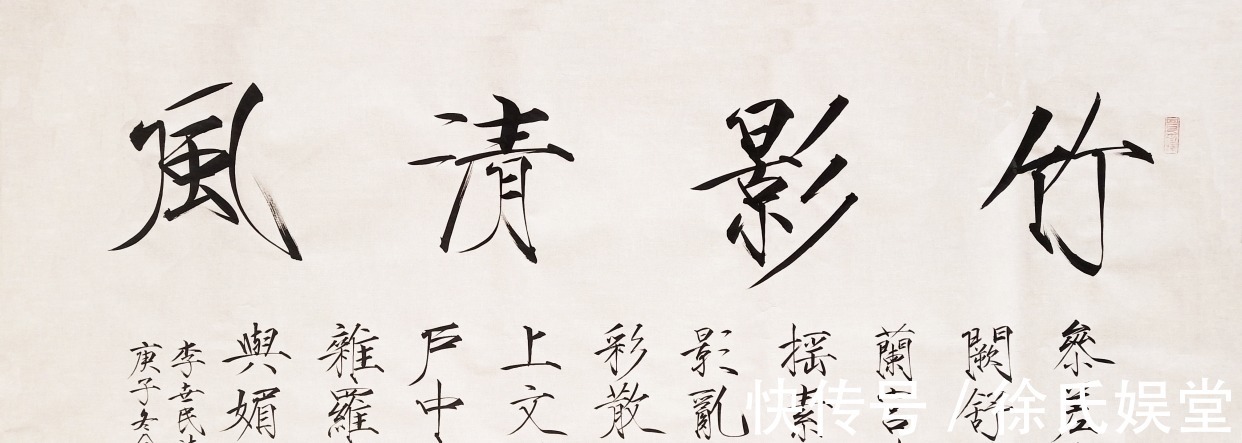 竹影清風
參差
闕舒
蘭宮
搖素
影亂
彩散
上文
戶中
雜羅
與媚
李
民
庚子冬
快传号 / 徐氏娱堂